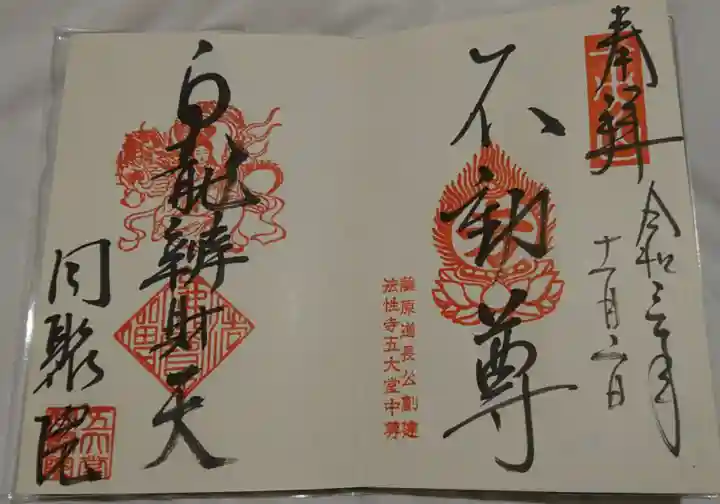 奉拝
令和三年
十一月二日
不動尊
藤原道長公創建
法性寺五大堂中尊
白龍辨財天
同聚院